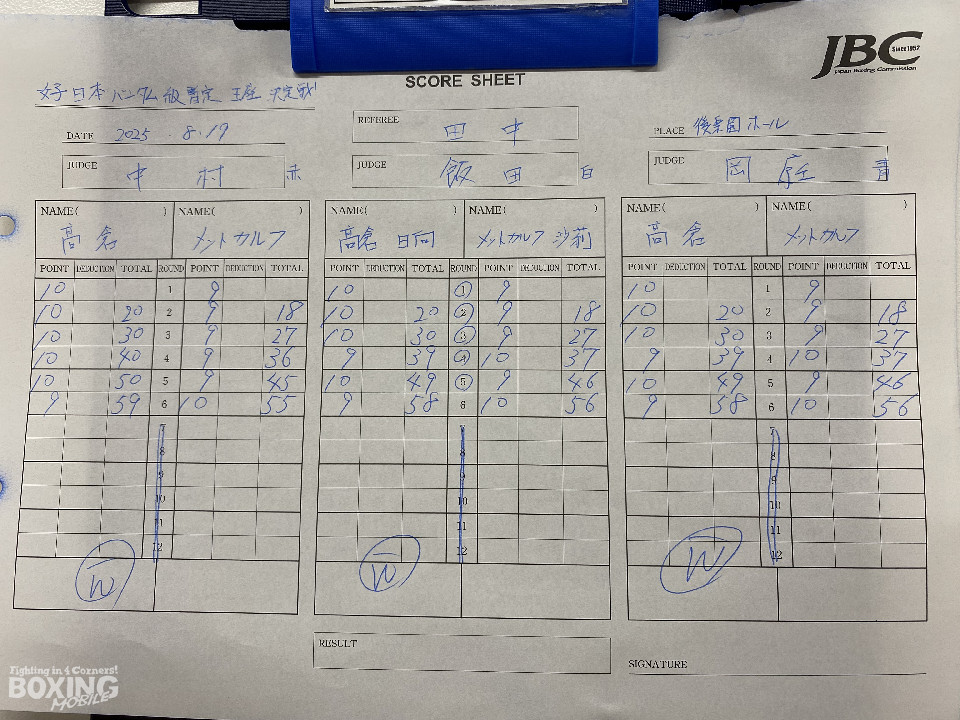 JBC Since 1952
Japan Boxing Commission
SCORE SHEET
女子日本バンタム級暫定王座決定戦
DATE 2025.8.19
REFEREE 田中
PLACE 後楽園ホール
JUDGE 中村 赤
JUDGE 飯田 白
JUDGE 岡庭 青
NAME( ) NAME( ) NAME( ) NAME( ) NAME( ) NAME( )
高倉 メットカルフ 高倉 日向 メットカルフ 沙莉 高倉 メットカルフ
POINT DEDUCTION TOTAL ROUND POINT DEDUCTION TOTAL POINT DEDUCTION TOTAL ROUND POINT DEDUCTION TOTAL POINT DEDUCTION TOTAL ROUND POINT DEDUCTION TOTAL
10 1 9 10 1 9 10 1 9
10 20 2 9 18 10 20 2 9 18 10 20 2 9 18
10 30 3 9 27 10 30 3 9 27 10 30 3 9 27
10 40 4 9 36 9 39 4 10 37 9 39 4 10 37
10 50 5 9 45 10 49 5 9 46 10 49 5 9 46
9 59 6 10 55 9 58 6 10 56 9 58 6 10 56
7 7 7
8 8 8
9 9 9
10 10 10
11 11 11
12 12 12
W W W
RESULT
SIGNATURE
Fighting in 4 Corners!
BOXING
MOBILE